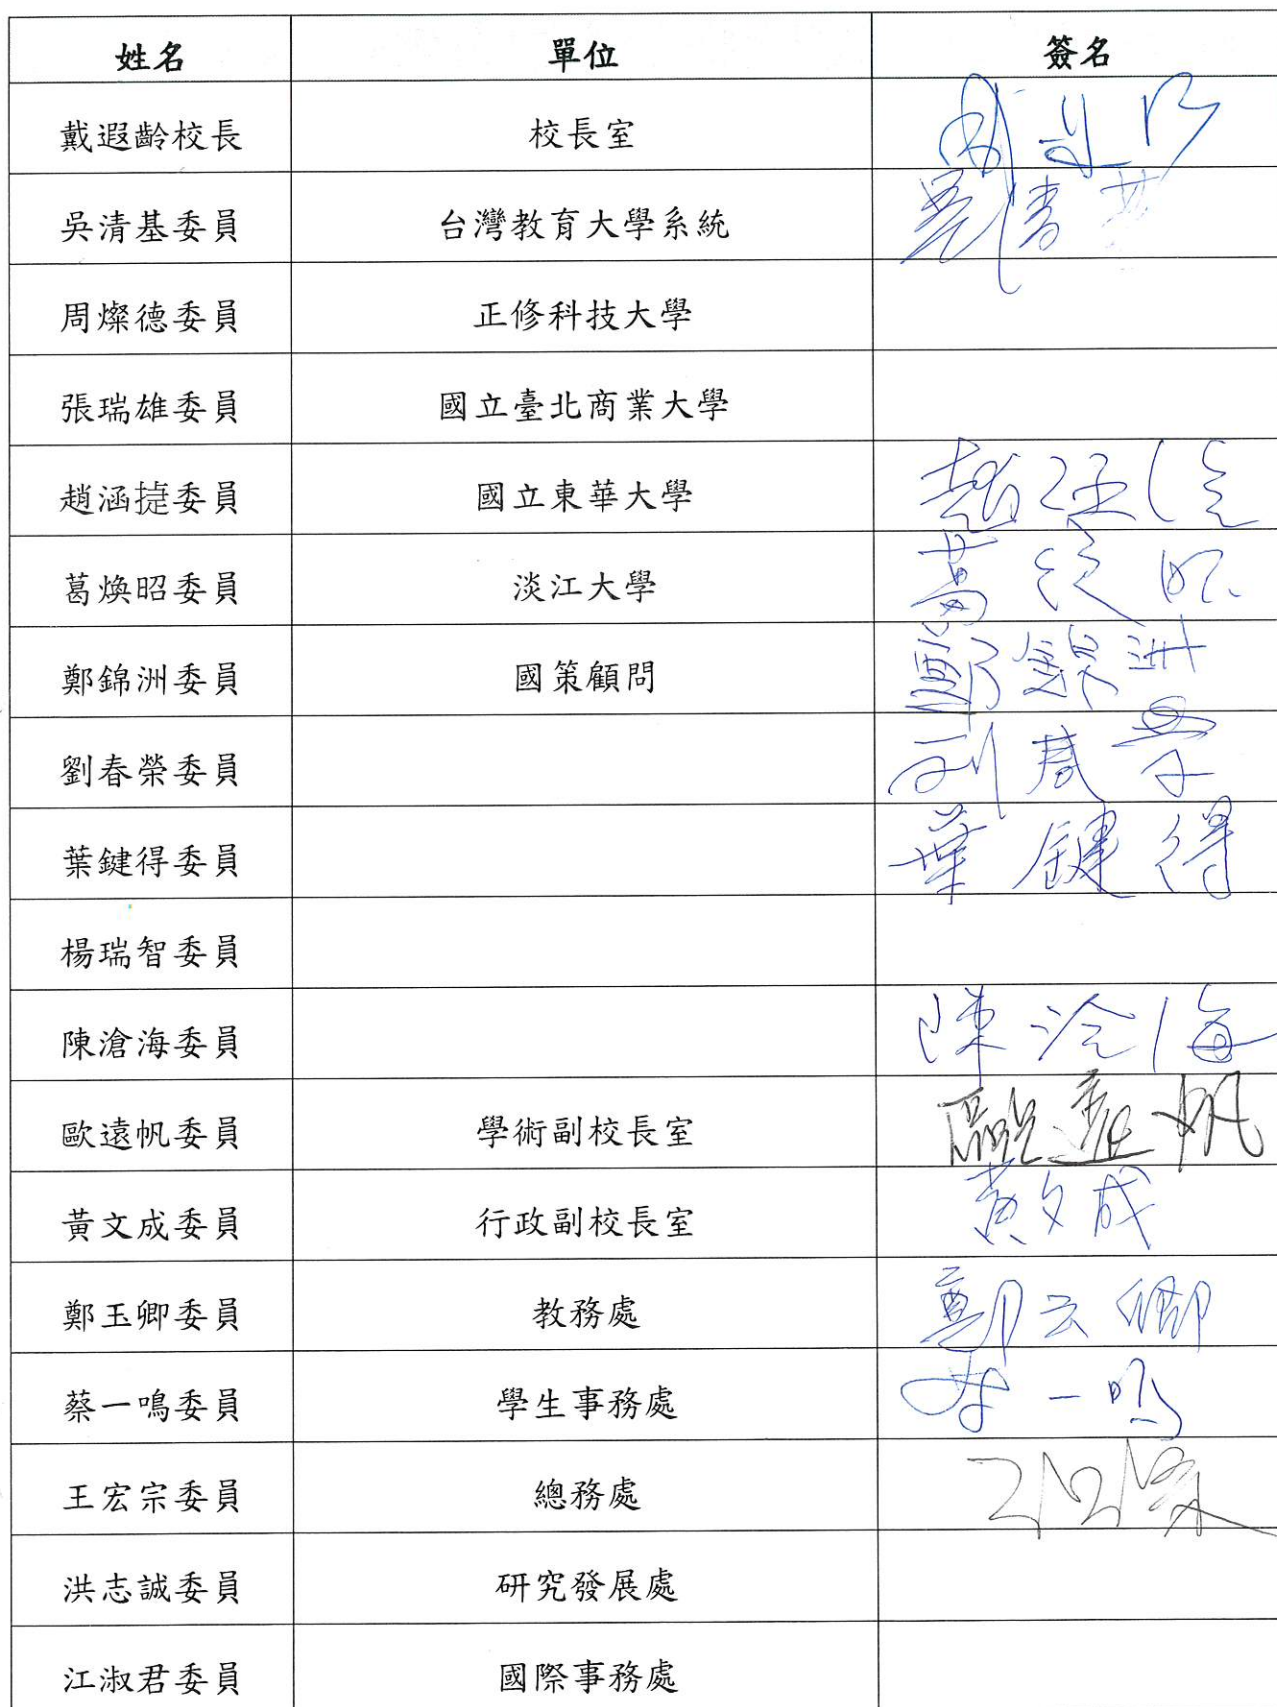 姓名 單位 簽名
戴遐齡校長 校長室
吳清基委員 台灣教育大學系統
周燦德委員 正修科技大學
張瑞雄委員 國立臺北商業大學
趙涵㨗委員 國立東華大學
葛煥昭委員 淡江大學
鄭錦洲委員 國策顧問 鄭錦洲
劉春榮委員
葉鍵得委員 葉鍵得
楊瑞智委員
陳滄海委員 陳滄海
歐遠帆委員 學術副校長室
黃文成委員 行政副校長室 黃文成
鄭玉卿委員 教務處
蔡一鳴委員 學生事務處
王宏宗委員 總務處
洪志誠委員 研究發展處
江淑君委員 國際事務處